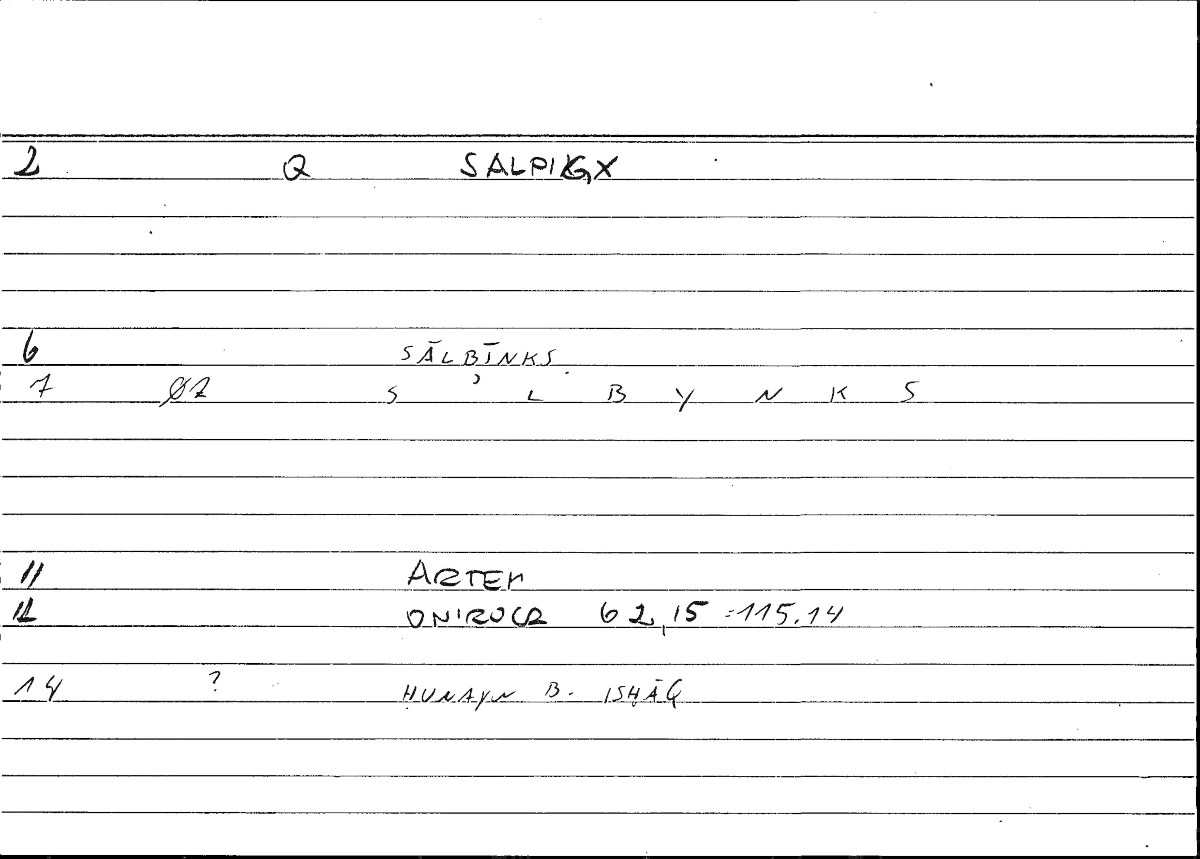 2 Q SALPIGX
6 SĀLBĪNKS
7 Ø2 S ʾ L B Y N K S
11 ARTEM
12 ONIROCR 62,15 = 115.14
14 ? ḤUNAYN B. ISḤĀQ